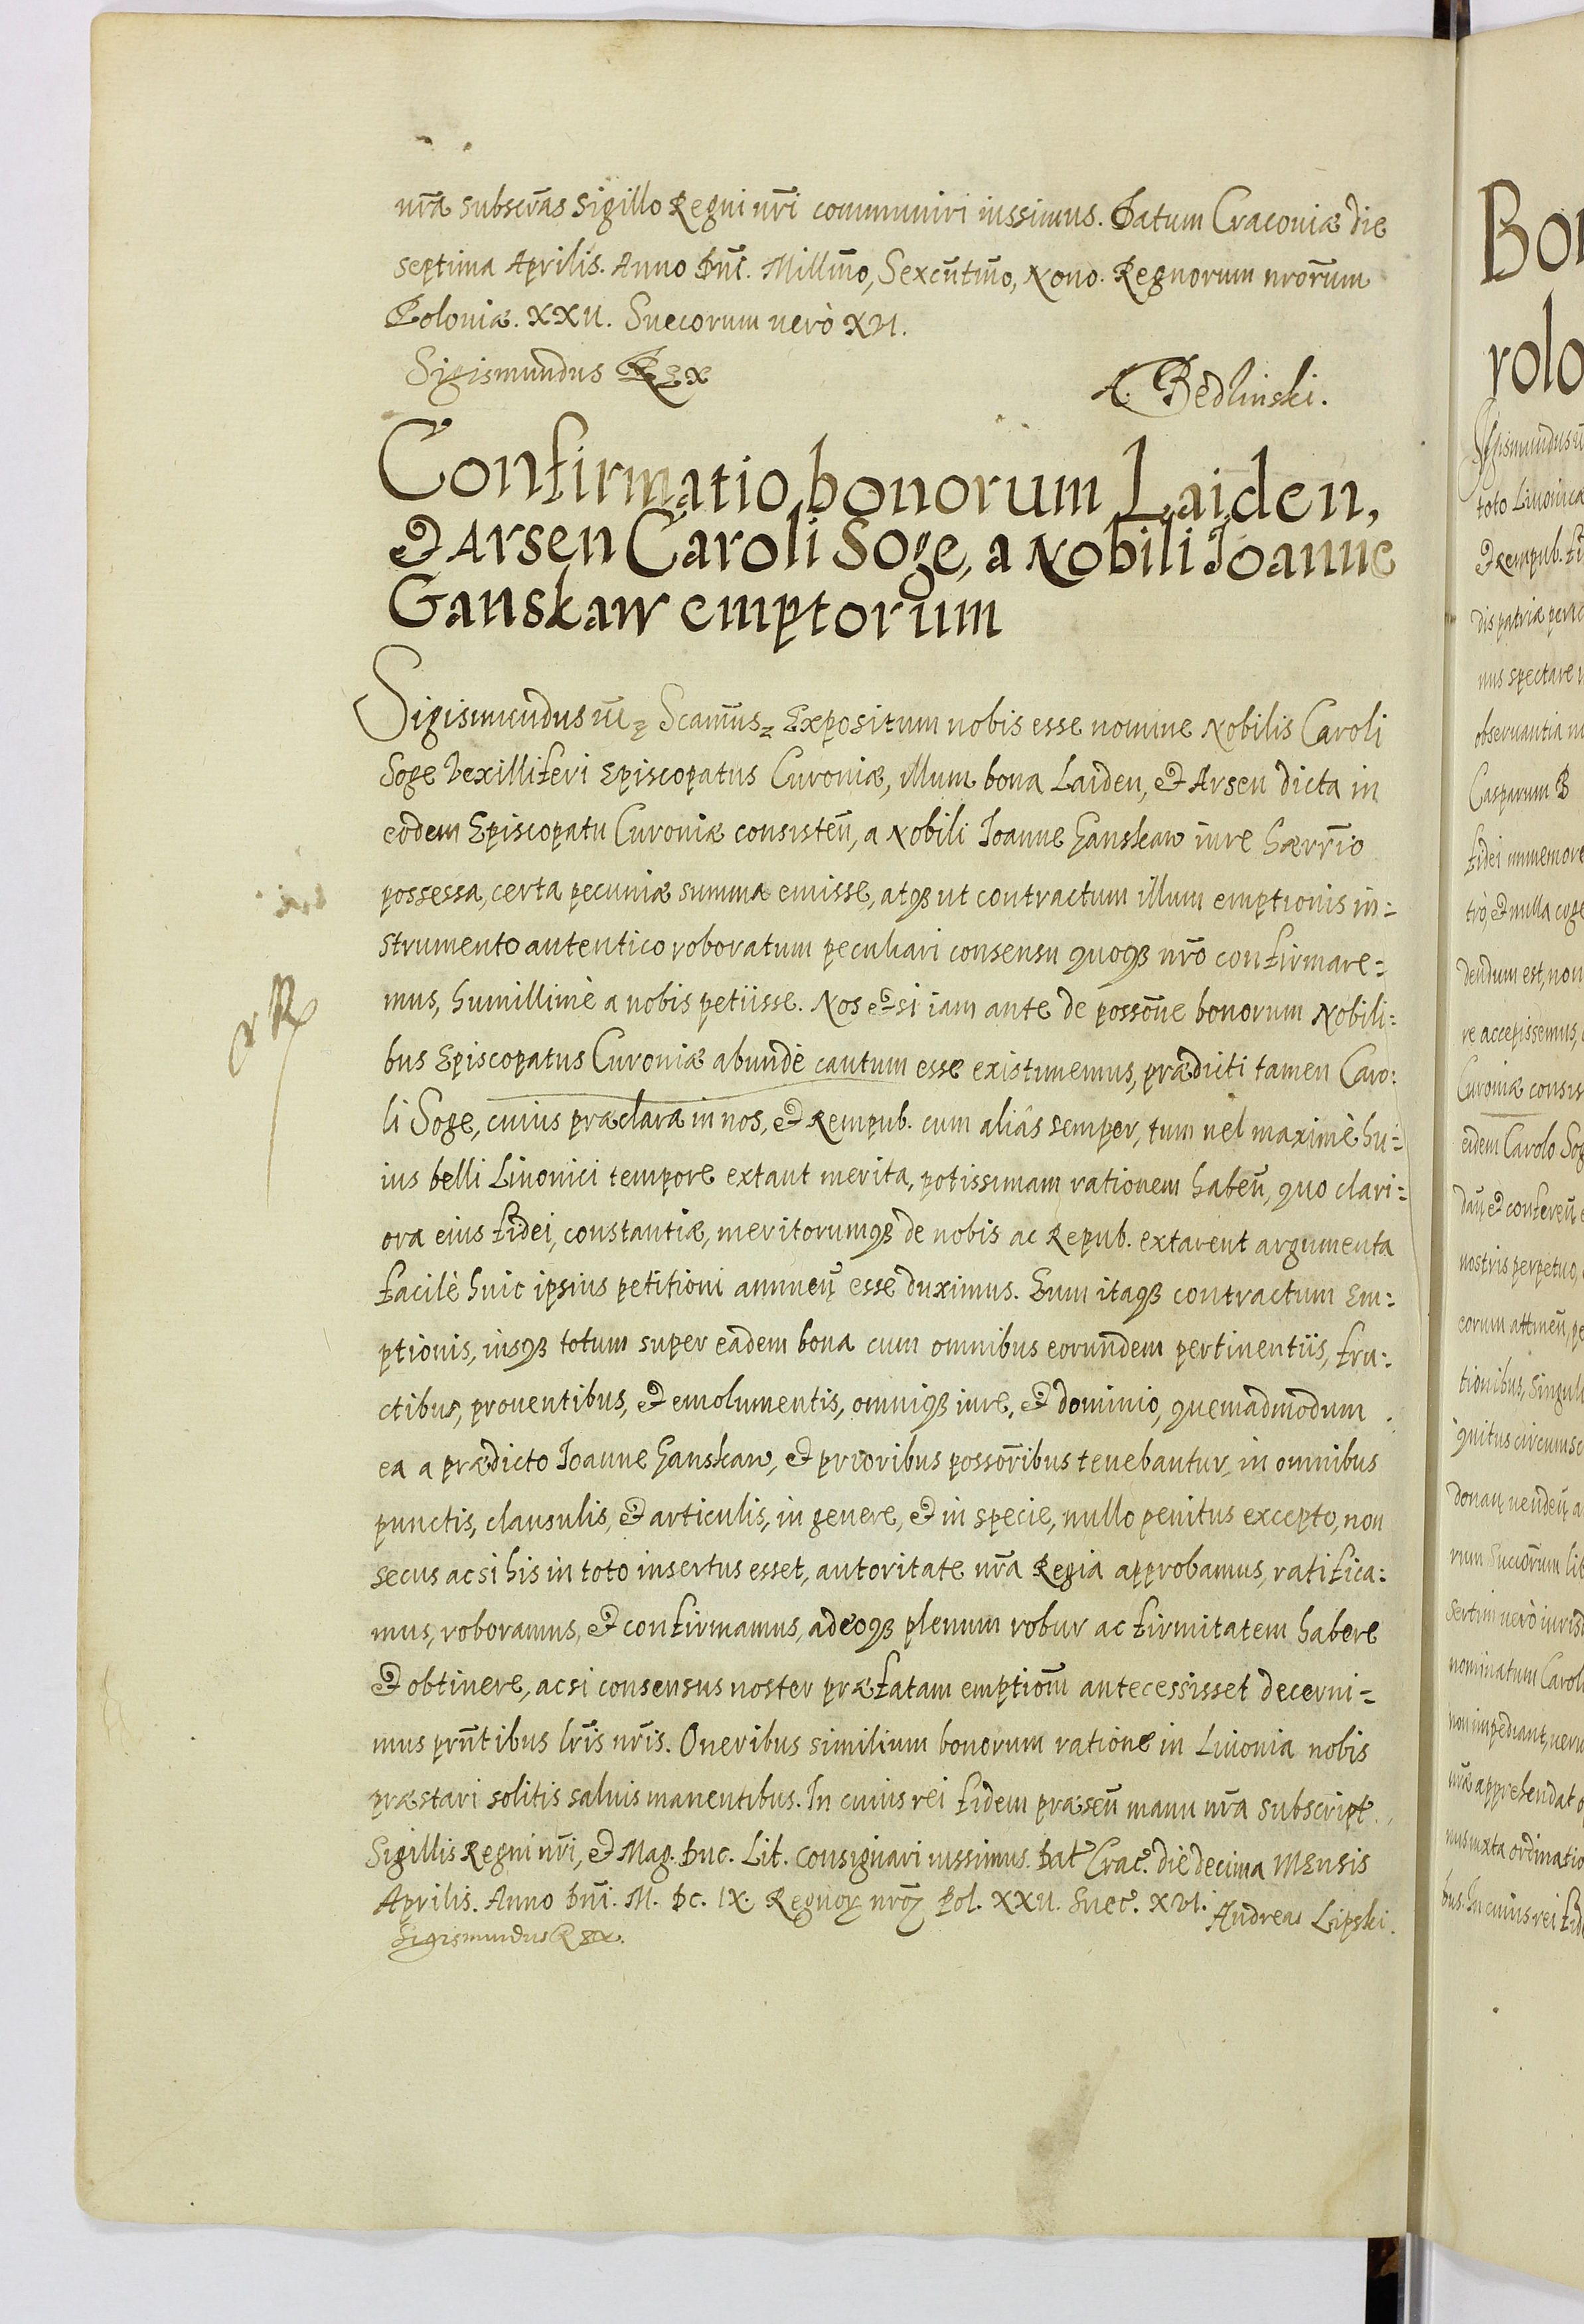 nr̃a subscr̃as Sigillo Regni nr̃i communiri iussimus. Datum Cracoviæ die
septima Aprilis. Anno Dnĩ. Millm̃o, Sexcñtm̃o, Nono. Regnorum nrõrum
Poloniæ. XXII. Suecorum verò XVI.
Sigismundus Rex
A. Bedlinski.
Confirmatio bonorum Laiden,
& Arsen Caroli Soge, a Nobili Joanne
Ganskaw emptorum
Sigismundus III Scam̃us Expositum nobis esse nomine Nobilis Caroli
Soge Vexilliferi Episcopatus Curoniæ, illum bona Laiden, & Arsen dicta in
eodem Episcopatu Curoniæ consisteñ, a Nobili Joanne Ganskaw iure hærr̃io
possessa, certa pecuniæ summa emisse, atqȝ ut contractum illum emptionis in=
strumento autentico roboratum peculiari consensu quoqȝ nr̃o confirmare=
mus, humillimè a nobis petiisse. Nos etsi iam ante de possõne bonorum Nobili=
bus Episcopatus Curoniæ abundè cautum esse existimemus, prædicti tamen Caro=
li Soge, cuius præclara in nos, & Rempub. cum aliâs semper, tum vel maximè hu=
ius belli Livonici tempore extant merita, potissimam rationem habeñ, quo clari=
ora eius fidei, constantiæ, meritorumqȝ de nobis ac Repub. extarent argumenta
facilè huic ipsius petitioni annueñ esse duximus. Eum itaqȝ contractum Em=
ptionis, iusqȝ totum super eadem bona cum omnibus eorundem pertinentiis, fru=
ctibus, proventibus, & emolumentis, omniqȝ iure, & dominio, quemadmodum
ea a prædicto Joanne Ganskaw, & prioribus possor̃ibus tenebantur, in omnibus
punctis, clausulis, & articulis, in genere, & in specie, nullo penitus excepto, non
secus ac si his in toto insertus esset, autoritate nr̃a Regia approbamus, ratifica=
mus, roboramus, & confirmamus, adeoqȝ plenum robur ac firmitatem habere
& obtinere, ac si consensus noster præfatam emptiom̃ antecessisset decerni=
mus prñtibus lr̃is nr̃is. Oneribus similium bonorum ratione in Livonia nobis
præstari solitis salvis manentibus. In cuius rei fidem præseñ manu nr̃a subscript.
Sigillis Regni nr̃i, & Mag. Duc. Lit. consignari iussimus. Dat Crac. die decima Mensis
Aprilis. Anno Dnĩ. M. DC. IX. Regnoꝝ nrõꝝ Pol. XXII. Suec. XVI.
Andreas Lipski.
Sigismundus Rex.
Bon
rolo
toto Livonicæ
dis patriæ peric
nus spectare
observantia
Casparum B
fidei immemore
trò, & nulla coge
dendum est, non
re accepissemus,
Curoniæ consis
eidem Carolo Sog
nostris perpetuo,
tionibus, singul
nominatum Carol
non impediant,
nr̃æ apprehendat
mus iuxta ordinatio
bus. In cuius rei fid